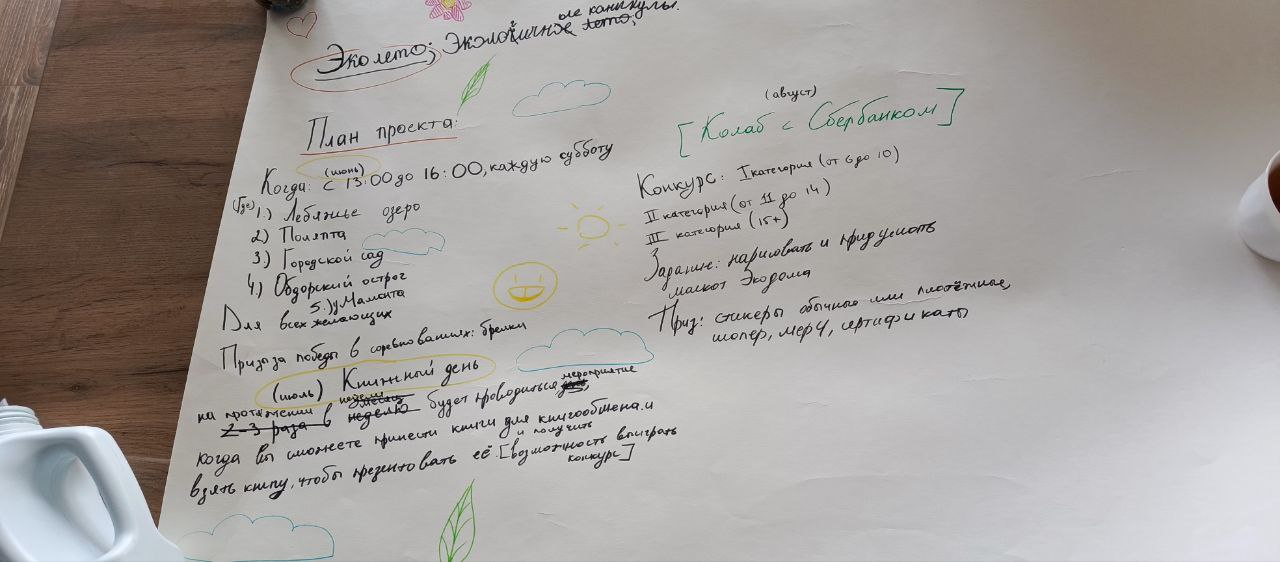 Эколето; Экологичные каникулы.
лето;
План проекта:
(июнь)
Когда: с 13:00 до 16:00, каждую субботу
(Где) 1.) Лебяжье озеро
2) Полянта
3) Городской сад
4.) Обдорский острог
5.) у Мамонта
Для всех желающих
Призы за победы в соревнованиях: брелки
(июль) Книжный день
на протяжении недели
2-3 раза в неделю месяц будет проводиться мероприятие,
когда вы сможете принести книги для книгообмена и
взять книгу, чтобы презентовать её. и получить [возможность выиграть
конкурс]
(август)
[Колаб с Сбербанком]
Конкурс: I категория (от 6 до 10)
II категория (от 11 до 14)
III категория (15+)
Задание: нарисовать и придумать
маскот Экодома
Приз: стикеры обычные или плотёжные,
шопер, мерч, сертификаты